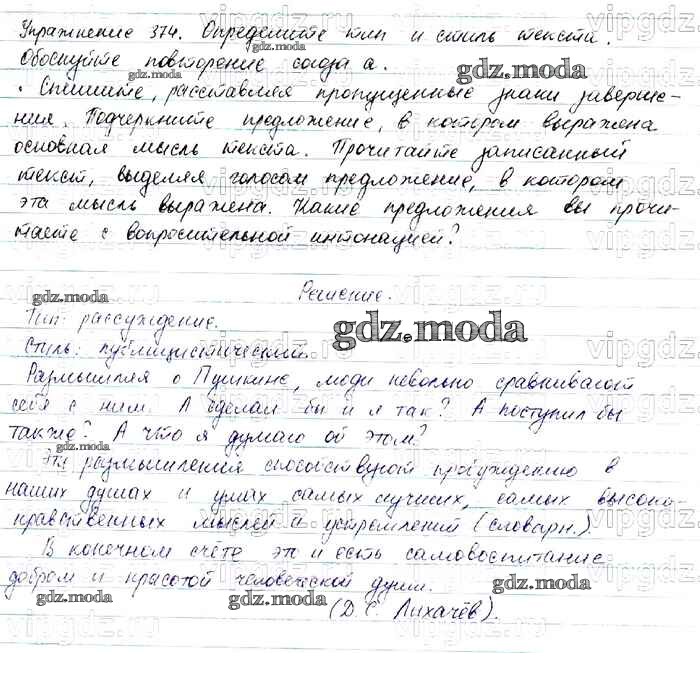 Упражнение 374. Определите тип и стиль текста.
Обоснуйте повторение союза а.
. Спишите, расставляя пропущенные знаки заверше-
ния. Подчеркните предложение, в котором выражена
основная мысль текста. Прочитайте записанный
текст, выделяя голосом предложение, в котором
эта мысль выражена. Какие предложения вы прочи-
таете с вопросительной интонацией?
Решение.
Тип: рассуждение.
Стиль: публицистический.
Размышляя о Пушкине, люди невольно сравнивают
себя с ним. А сделал бы и я так? А поступил бы
также? А что я думаю об этом?
Эти размышления способствуют пробуждению в
наших душах и умах самых лучших, самых высоко-
нравственных мыслей и устремлений (словарн.).
В конечном счёте это и есть самовоспитание
добром и красотой человеческой души.
(Д. С. Лихачёв).
gdz.moda
vipgdz.ru